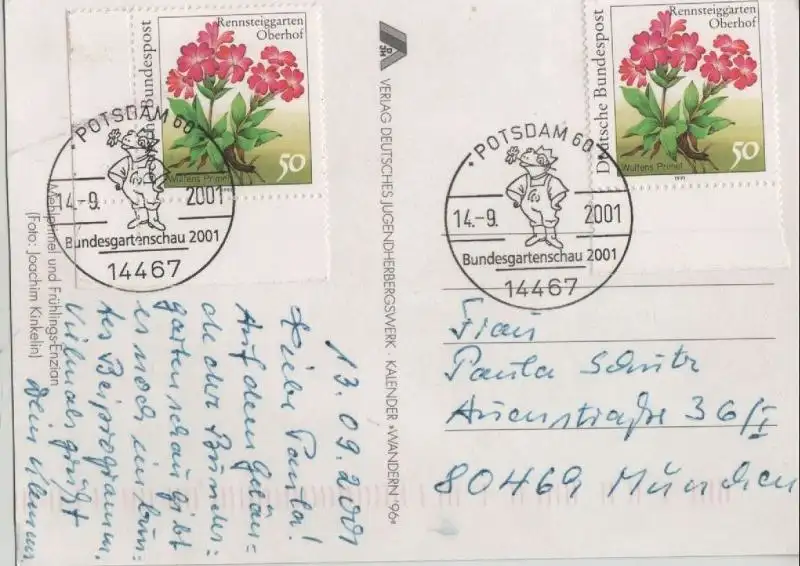 Rennsteiggarten
Oberhof
Deutsche Bundespost
Wulfens Primel
50
1991
POTSDAM 60
14.-9. 2001
Bundesgartenschau 2001
14467
Rennsteiggarten
Oberhof
Deutsche Bundespost
Wulfens Primel
50
1991
POTSDAM 60
14.-9. 2001
Bundesgartenschau 2001
14467
VERLAG DEUTSCHES JUGENDHERBERGSWERK · KALENDER »WANDERN '96«
Mehlprimel und Frühlings-Enzian
(Foto: Joachim Kinkelin)
13.09.2001
Liebe Paula!
Auf dem Gelän=
de der Bundes=
gartenschau gibt
es noch ein bun=
tes Beiprogramm.
Vielmals grüßt
Dein
Frau
Paula Schutz
Auenstraße 36/I
80469 München